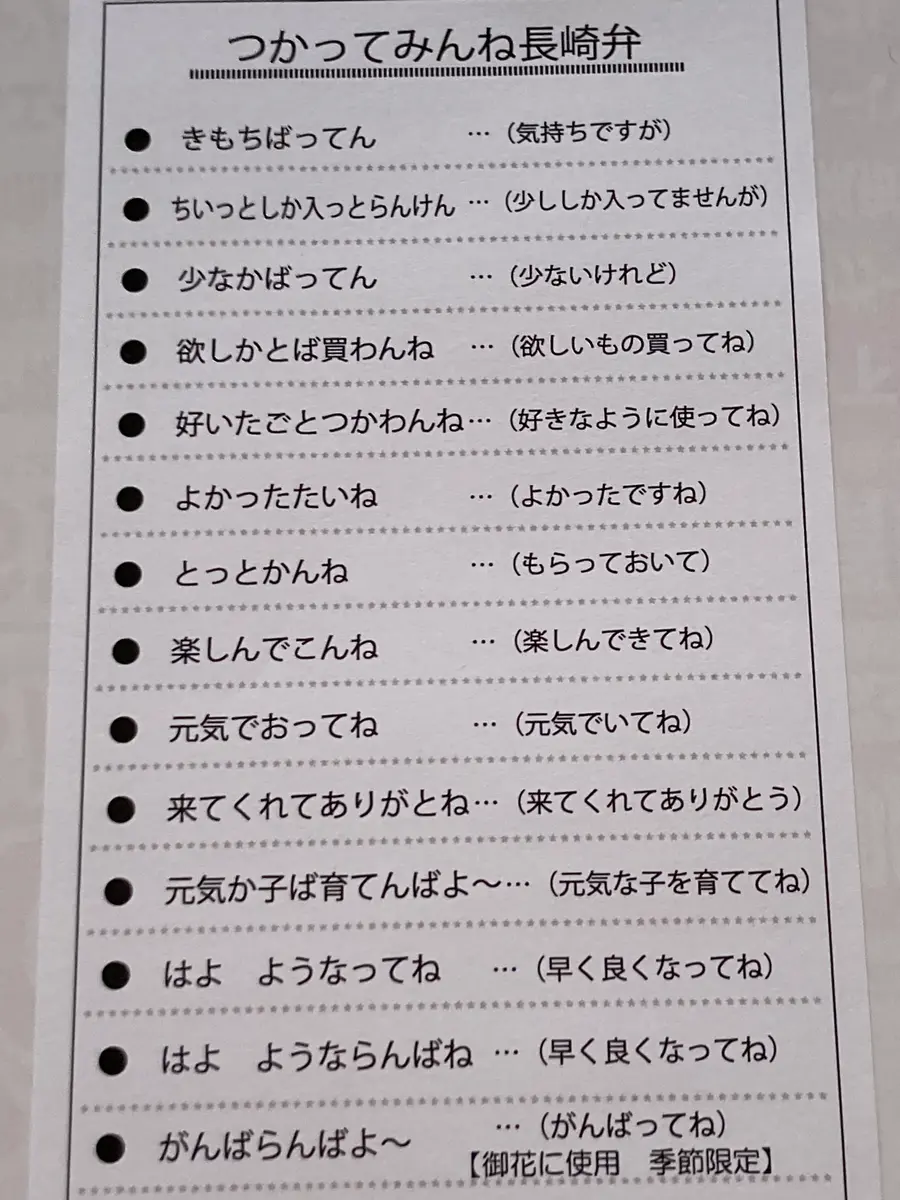 つかってみんね長崎弁
● きもちばってん …（気持ちですが）
● ちいっとしか入っとらんけん …（少ししか入ってませんが）
● 少なかばってん …（少ないけれど）
● 欲しかとば買わんね …（欲しいもの買ってね）
● 好いたごとつかわんね…（好きなように使ってね）
● よかったたいね …（よかったですね）
● とっとかんね …（もらっておいて）
● 楽しんでこんね …（楽しんできてね）
● 元気でおってね …（元気でいてね）
● 来てくれてありがとね…（来てくれてありがとう）
● 元気か子ば育てんばよ～…（元気な子を育ててね）
● はよ　ようなってね …（早く良くなってね）
● はよ　ようならんばね …（早く良くなってね）
● がんばらんばよ～ …（がんばってね）
【御花に使用　季節限定】